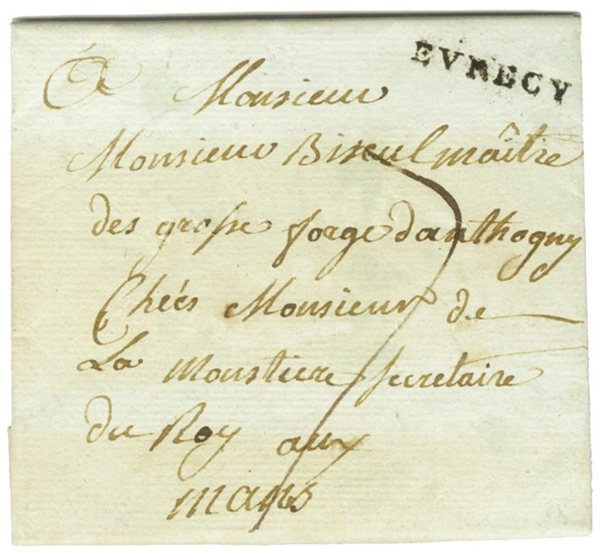 EVRECY
A Monsieur
Monsieur Biseul maître
des grosse forge danthogny
Chéés Monsieur de
La Monstiere secretaire
du Roy aux
mans
7